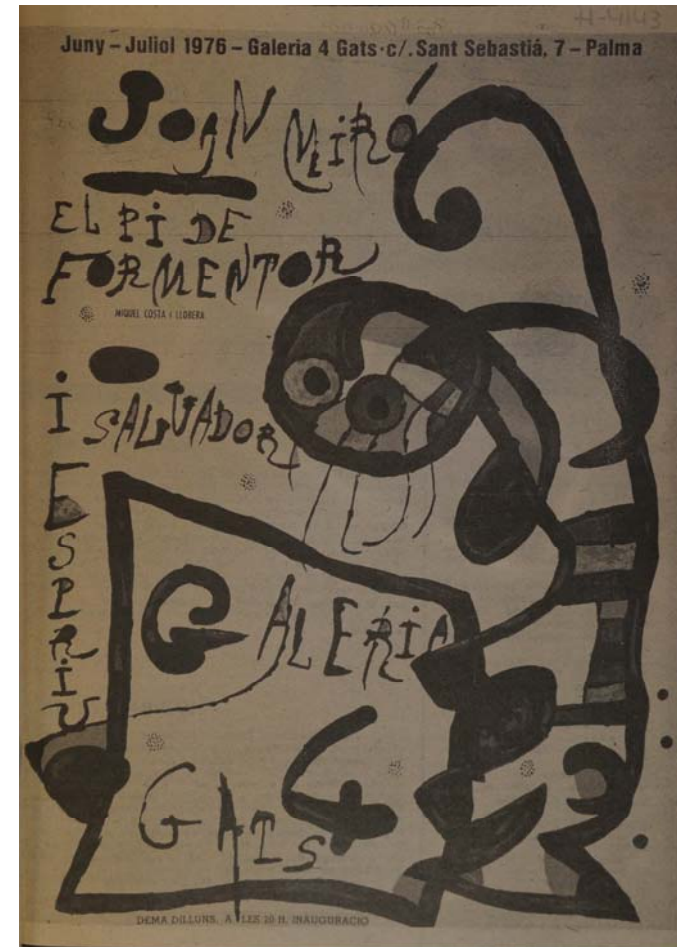 H-4143
Juny – Juliol 1976 – Galeria 4 Gats · c/. Sant Sebastiá, 7 – Palma
JOAN MIRÓ
EL PI DE
FORMENTOR
MIQUEL COSTA I LLOBERA
I SALVADOR
ESPRIU
GALERIA
4
GATS
DEMA DILLUNS, A LES 20 H. INAUGURACIO